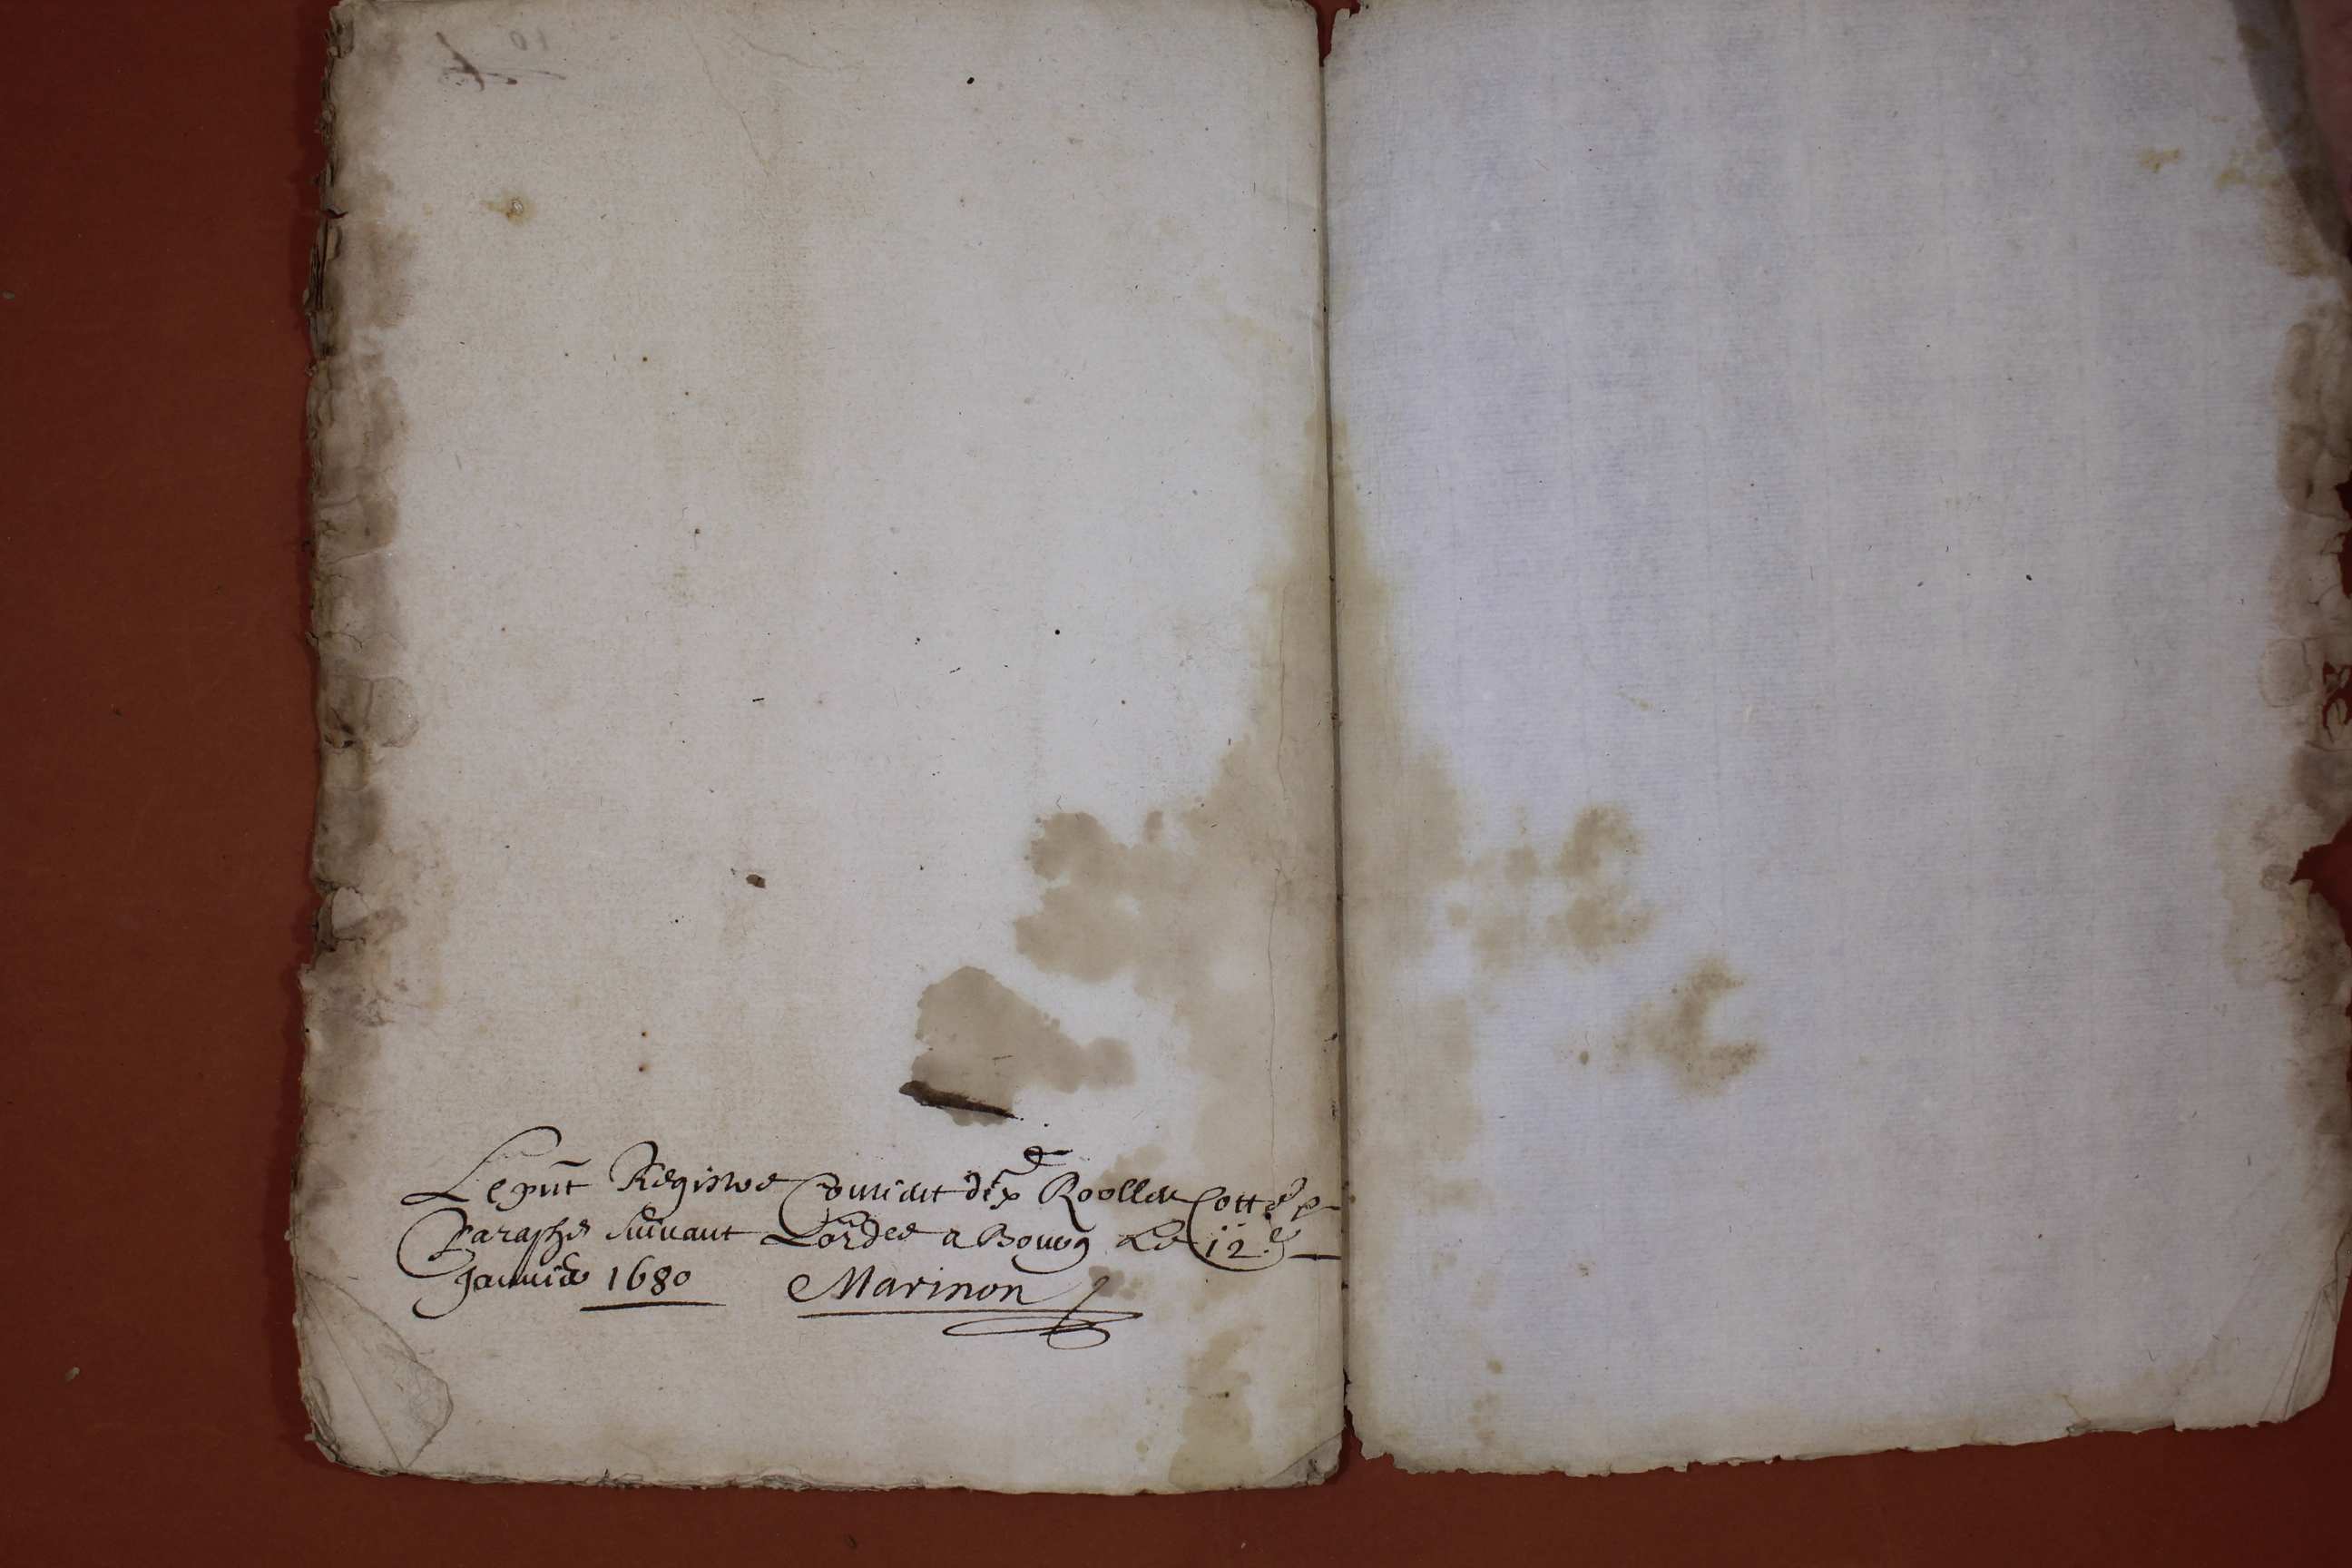 Le pnt Registre Contient dix Roolles Cottés &
Paraphé suivant Lordre a Bourg Le 12.e
Janvier 1680 Marinon